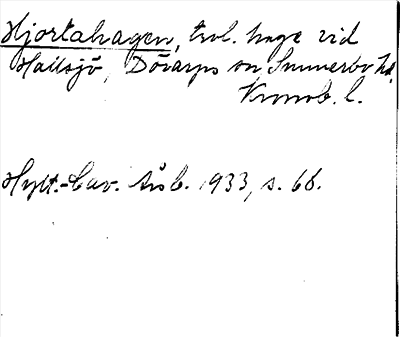 Hjortahagen, trol. hage vid
Hallsjö, Dörarps sn, Sunnerbo hd.
Kronob. l.
Hylt.-Cav. Årsb. 1933, s. 68.